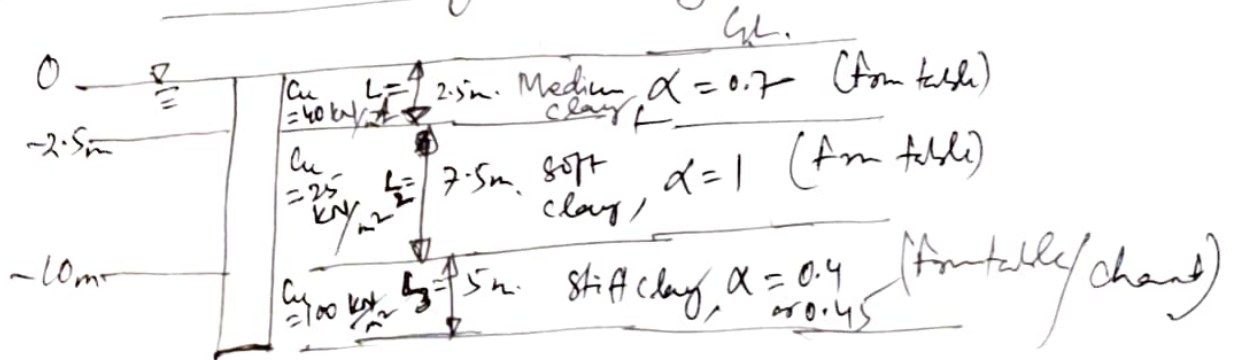 G.L.
0
Cu = 40 kN/m² L = 2.5m. Medium clay, α = 0.7 (from table)
-2.5m
Cu = 25 kN/m² L2 = 7.5m. soft clay, α = 1 (from table)
-10m
Cu = 100 kN/m² L3 = 5m. Stiff clay, α = 0.4 or 0.45 (from table/chart)